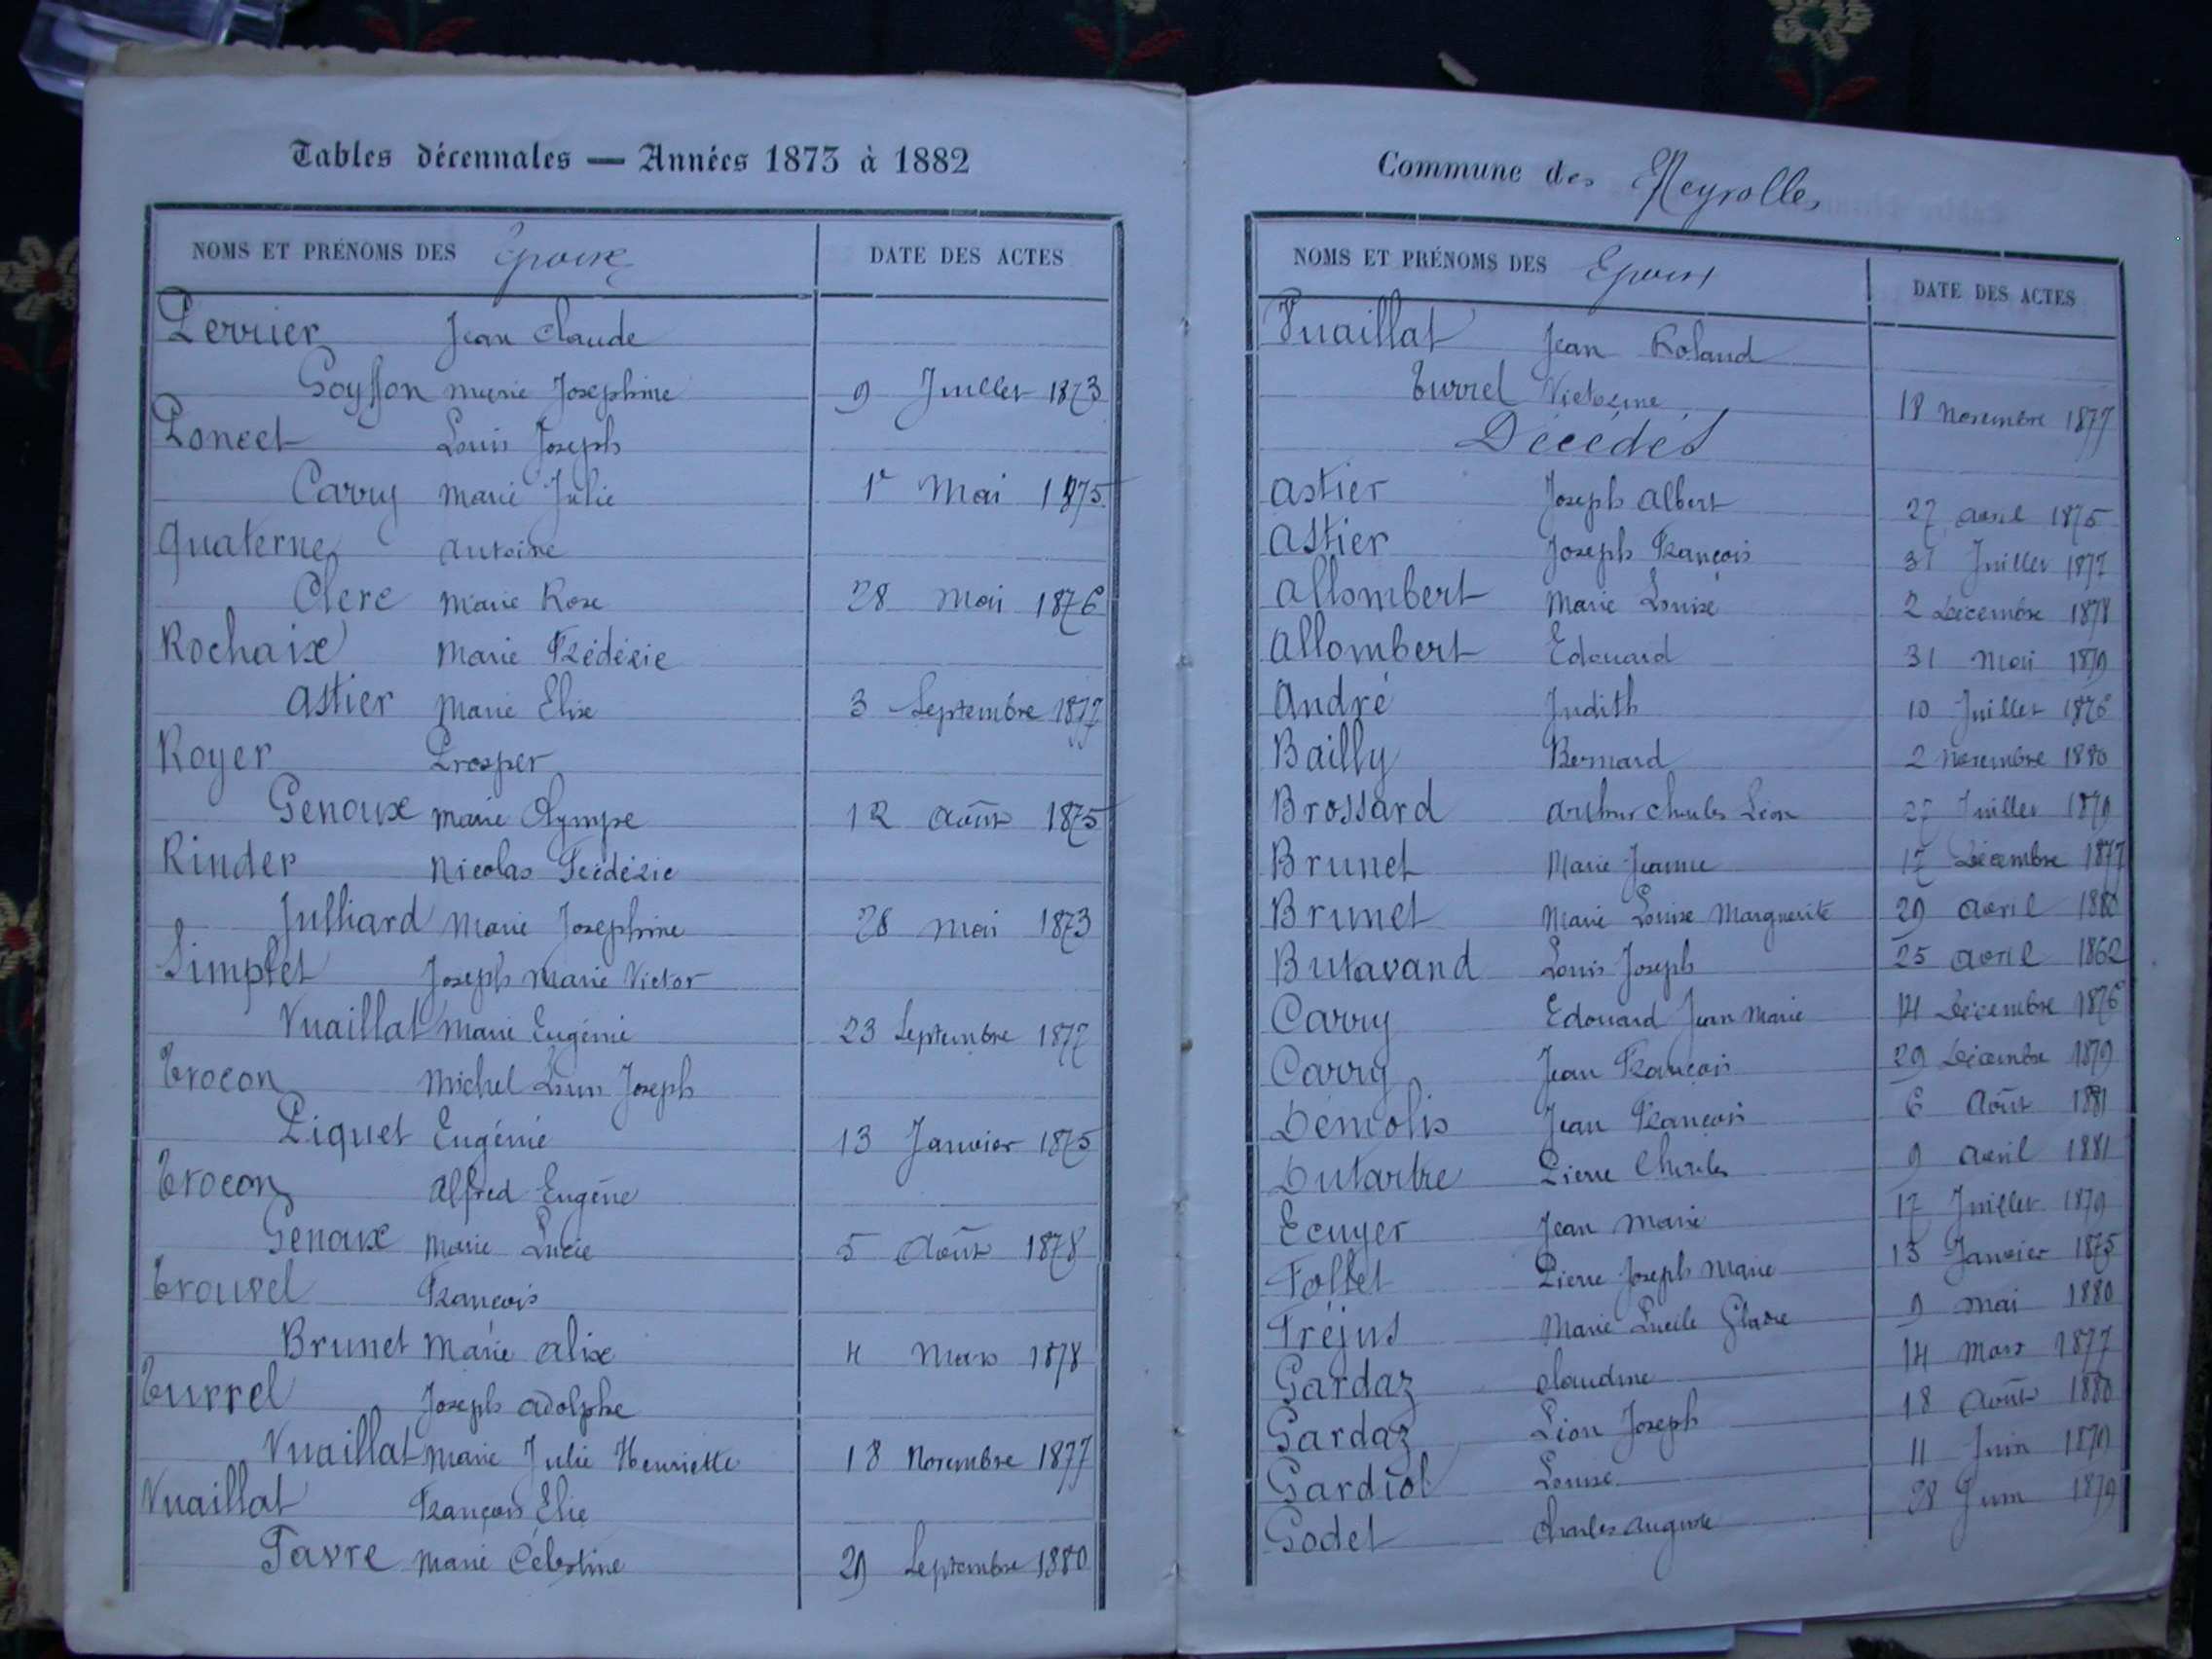 Tables décennales — Années 1873 à 1882
NOMS ET PRÉNOMS DES Epoux
DATE DES ACTES
Perrier Jean Claude
Goyffon Marie Josephine 9 Juillet 1873
Poncet Louis Joseph
Carry Marie Julie 1er Mai 1875
Quaterne Antoine
Clerc Marie Rose 28 Mai 1876
Rochaix Marie Frédéric
Astier Marie Elise 3 Septembre 1877
Royer Prosper
Genoux Marie Olympe 12 Août 1875
Rinder Nicolas Frédéric
Julliard Marie Josephine 28 Mai 1873
Simplet Joseph Marie Victor
Vuaillat Marie Eugénie 23 Septembre 1877
Trocon Michel Louis Joseph
Piquet Eugénie 13 Janvier 1875
Trocon Alfred Eugène
Genoux Marie Lucie 5 Août 1878
Trouvel François
Brunet Marie Alix 4 Mars 1878
Turrel Joseph Adolphe
Vuaillat Marie Julie Henriette 18 Novembre 1877
Vuaillat François Elie
Favre Marie Célestine 29 Septembre 1880
Commune des Neyrolles
NOMS ET PRÉNOMS DES Epoux
DATE DES ACTES
Vuaillat Jean Roland
Turrel Victorine 18 Novembre 1877
Décédés
Astier Joseph Albert 27 Avril 1875
Astier Joseph François 31 Juillet 1877
Allombert Marie Louise 2 Décembre 1878
Allombert Edouard 31 Mai 1879
André Judith 10 Juillet 1876
Bailly Bernard 2 Novembre 1880
Brossard Arthur Charles Léon 27 Juillet 1879
Brunet Marie Jeanne 17 Décembre 1877
Brunet Marie Louise Marguerite 29 Avril 1880
Butavand Louis Joseph 25 Avril 1862
Carry Edouard Jean Marie 14 Décembre 1876
Carry Jean François 29 Décembre 1879
Démolis Jean François 6 Août 1881
Dutartre Pierre Charles 9 Avril 1881
Ecuyer Jean Marie 17 Juillet 1879
Follet Pierre Joseph Marie 13 Janvier 1875
Fréjus Marie Lucile 9 Mai 1880
Gardaz Claudine 14 Mars 1877
Gardaz Léon Joseph 18 Août 1880
Gardiol Louise 11 Juin 1879
Godet Charles Auguste 28 Juin 1879